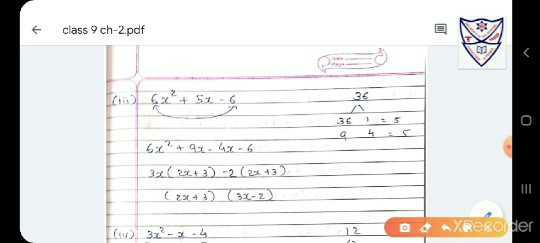 class 9 ch-2.pdf
(iii) 6x² + 5x - 6
36
36 1 = 5
9 4 = 5
6x² + 9x - 4x - 6
3x(2x+3) -2(2x+3)
(2x+3) (3x-2)
(iv) 3x² - x - 4
12
XRecorder